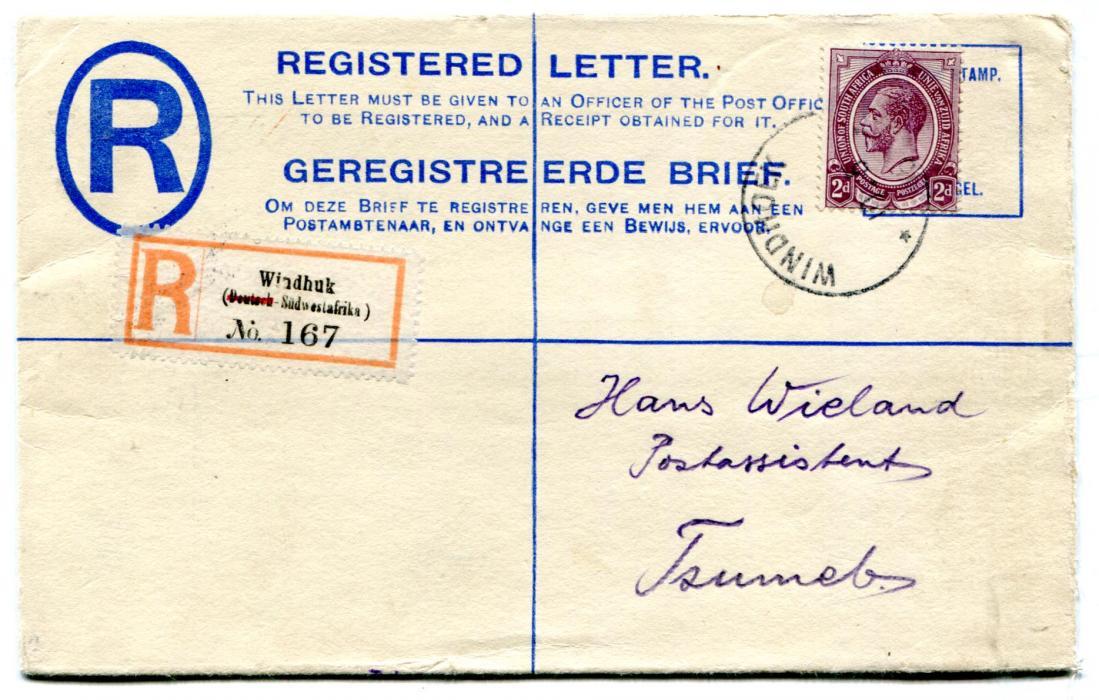 R
REGISTERED LETTER.
THIS LETTER MUST BE GIVEN TO AN OFFICER OF THE POST OFFIC
TO BE REGISTERED, AND A RECEIPT OBTAINED FOR IT.
GEREGISTREERDE BRIEF.
OM DEZE BRIEF TE REGISTREREN, GEVE MEN HEM AAN EEN
POSTAMBTENAAR, EN ONTVANGE EEN BEWIJS, ERVOOR.
TAMP.
GEL.
UNION OF SOUTH AFRICA
UNIE VAN ZUID AFRIKA
2d
POSTAGE
POSTZEGEL
2d
WINDHOEK
R
Windhuk
(Deutsch-Südwestafrika)
No. 167
Hans Wieland
Postassistent
Tsumeb.